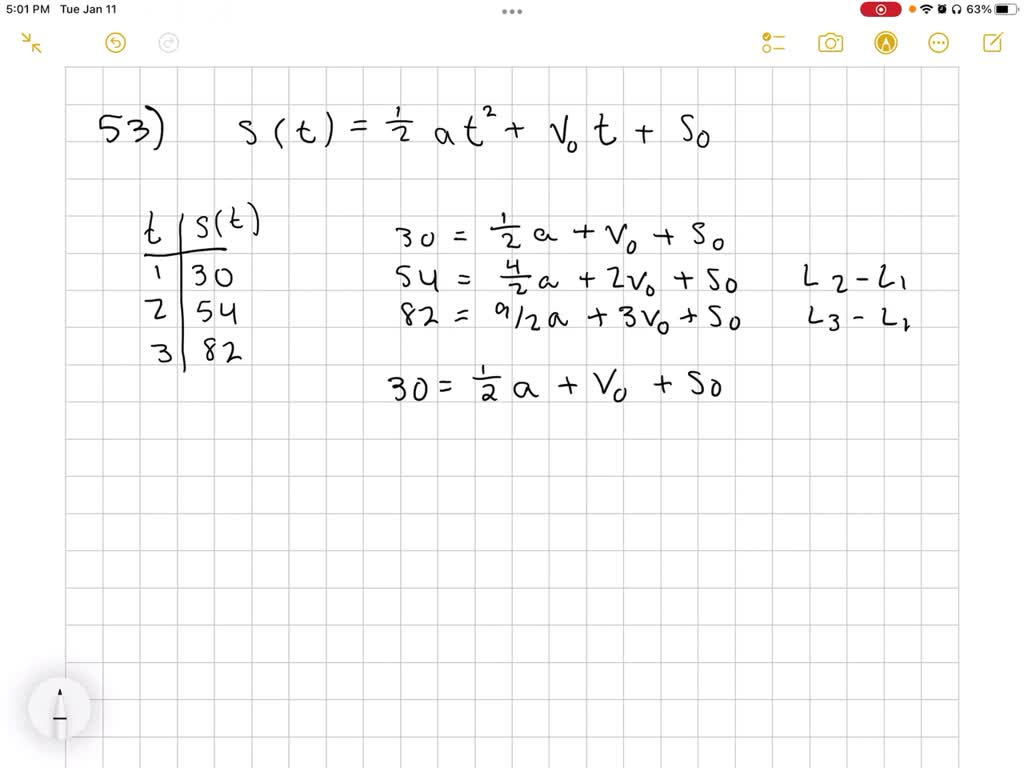 5:01 PM Tue Jan 11 63%
53) s(t) = 1/2 at² + V₀t + S₀
t | s(t)
1 | 30
2 | 54
3 | 82
30 = 1/2 a + V₀ + S₀
54 = 4/2 a + 2V₀ + S₀ L₂-L₁
82 = 9/2 a + 3V₀ + S₀ L₃-L₁
30 = 1/2 a + V₀ + S₀